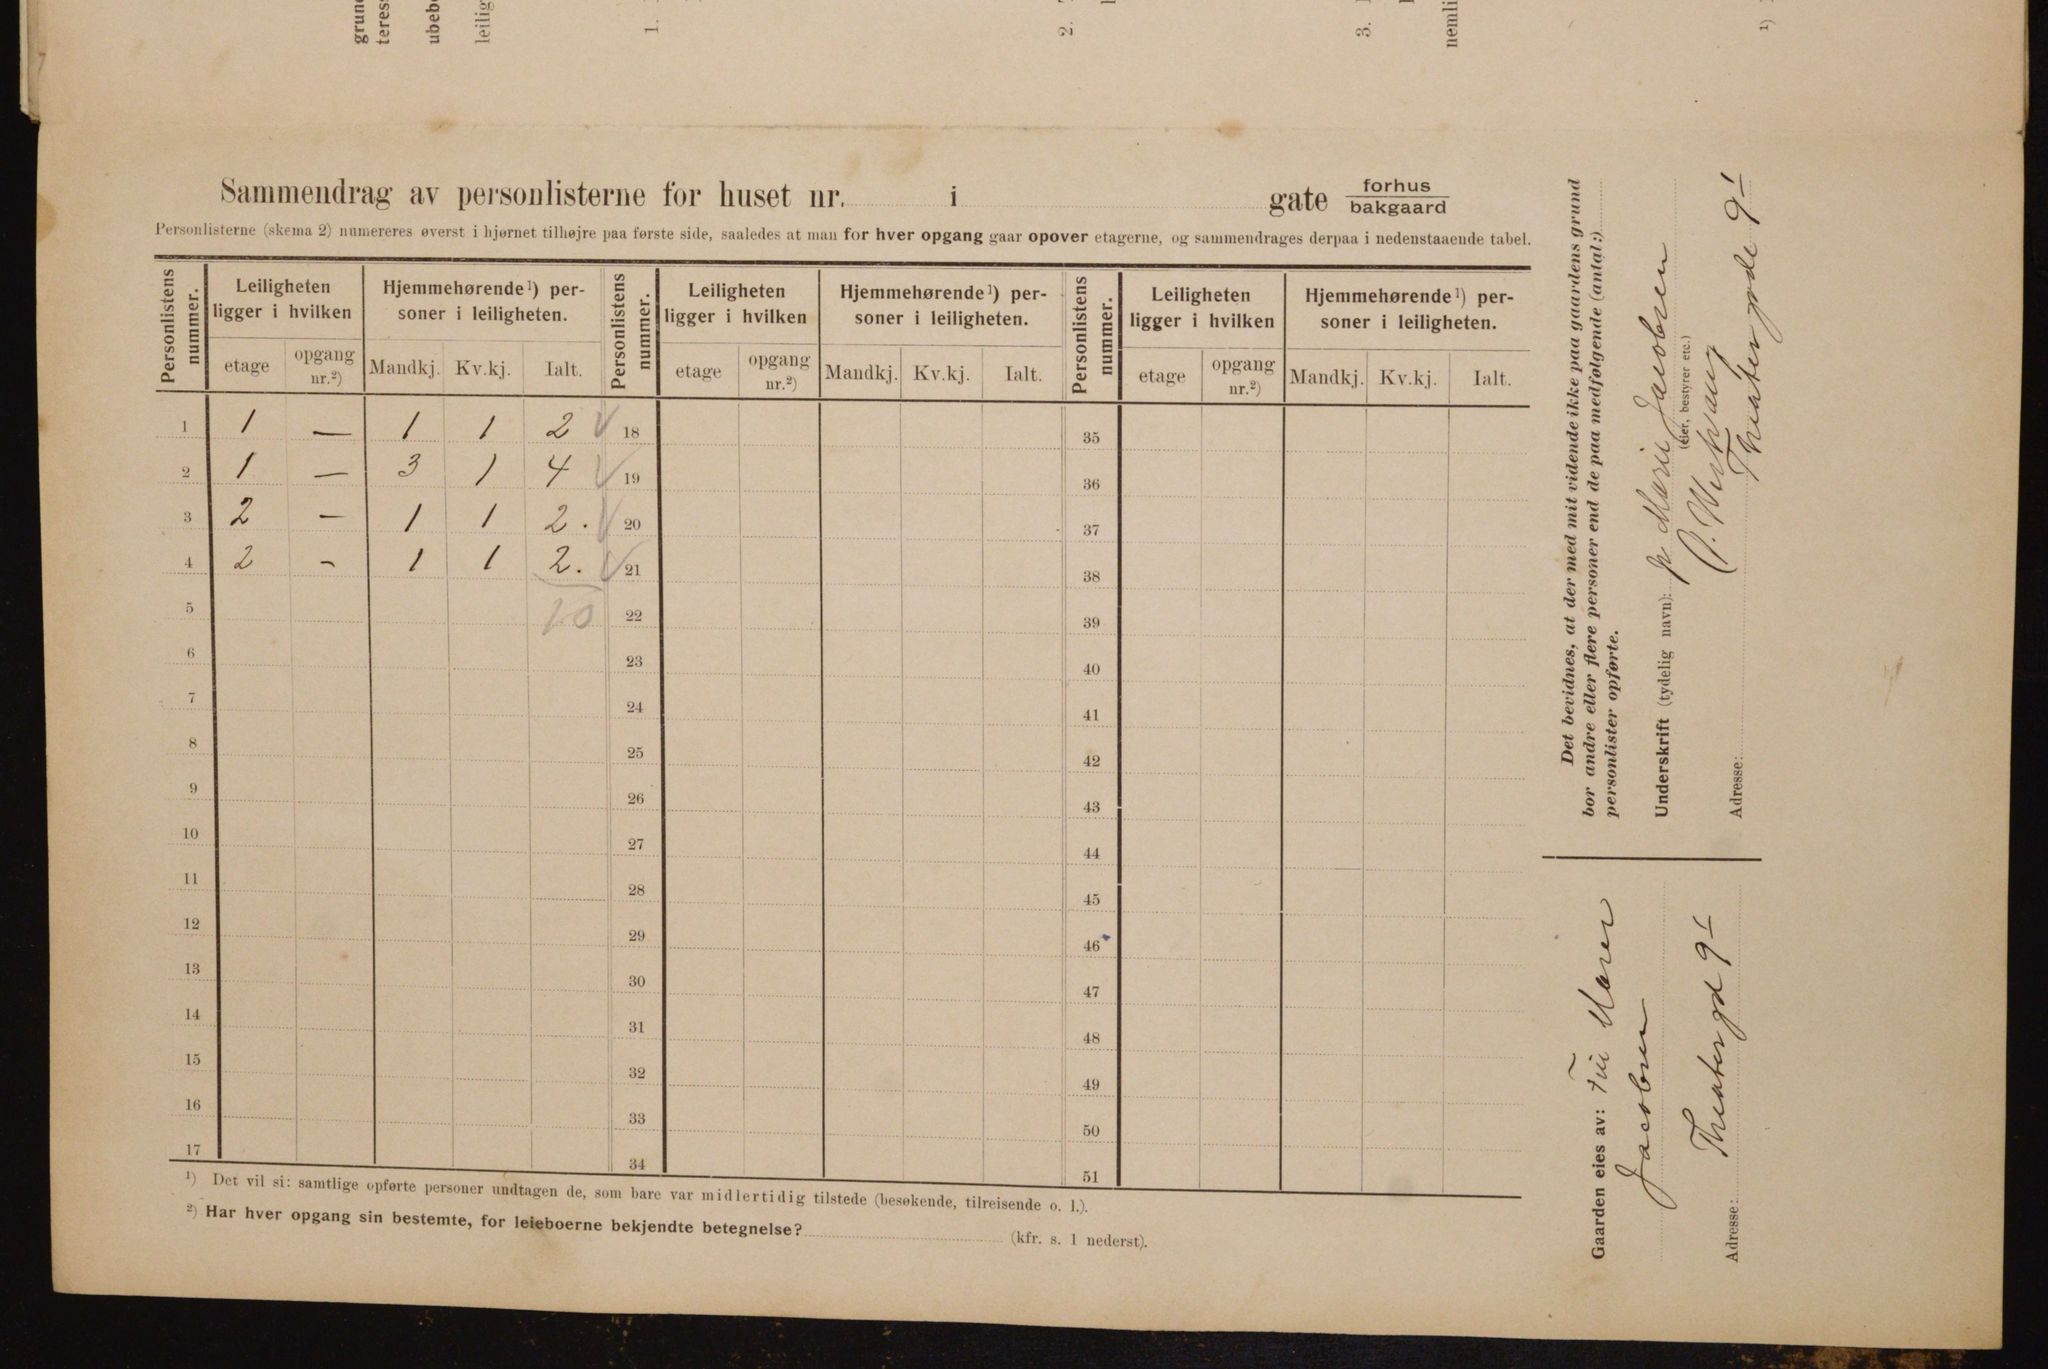 grund
teres
ubeb
leilig
1.
2.
3.
nemli
1)
Sammendrag av personlisterne for huset nr. i gate forhus
bakgaard
Personlisterne (skema 2) numereres øverst i hjørnet tilhøjre paa første side, saaledes at man for hver opgang gaar opover etagerne, og sammendrages derpaa i nedenstaaende tabel.
Personlistens nummer. Leiligheten ligger i hvilken Hjemmehørende¹) personer i leiligheten. Personlistens nummer. Leiligheten ligger i hvilken Hjemmehørende¹) personer i leiligheten. Personlistens nummer. Leiligheten ligger i hvilken Hjemmehørende¹) personer i leiligheten.
etage opgang nr.²) Mandkj. Kv.kj. Ialt. etage opgang nr.²) Mandkj. Kv.kj. Ialt. etage opgang nr.²) Mandkj. Kv.kj. Ialt.
1 1 — 1 1 2 ✓ 18 35
2 1 — 3 1 4 ✓ 19 36
3 2 — 1 1 2. ✓ 20 37
4 2 - 1 1 2. ✓ 21 38
5 10 22 39
6 23 40
7 24 41
8 25 42
9 26 43
10 27 44
11 28 45
12 29 46
13 30 47
14 31 48
15 32 49
16 33 50
17 34 51
¹) Det vil si: samtlige opførte personer undtagen de, som bare var midlertidig tilstede (besøkende, tilreisende o. l.).
²) Har hver opgang sin bestemte, for leieboerne bekjendte betegnelse? (kfr. s. 1 nederst).
Det bevidnes, at der med mit vidende ikke paa gaardens grund
bor andre eller flere personer end de paa medfølgende (antal:)
personlister opførte.
Underskrift (tydelig navn): p Marie Jacobsen
(eier, bestyrer etc.)
Adresse: Theatergade 9
Gaarden eies av:
Jacobsen
Adresse: Theatergd 9